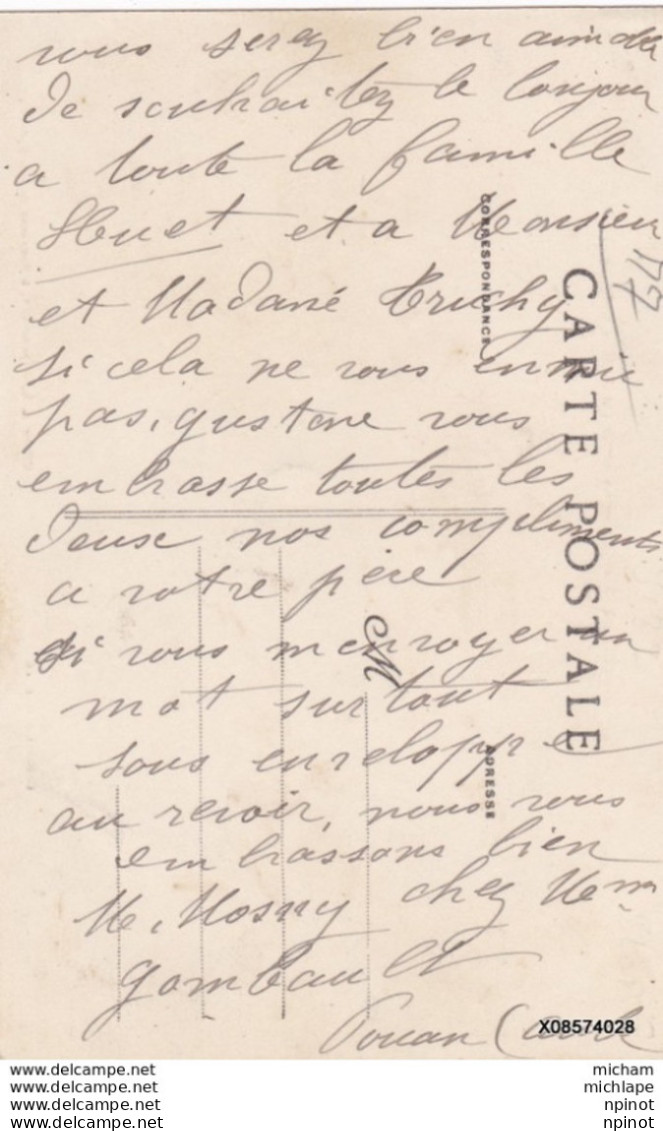 vous serez bien aimable
de souhaitez le bonjour
a toute la famille
Huet et a Monsieur
et Madame Truchy
si cela ne vous ennuie
pas, gustave vous
embrasse toutes les
deux nos compliments
a votre père
si vous m envoyer un
mot surtout
sous enveloppe
au revoir, nous vous
embrassons bien
M. Mosny chez Mme
gombault
Pouan (aube
177
CORRESPONDANCE
CARTE POSTALE
M
ADRESSE
X08574028
www.delcampe.net micham
www.delcampe.net michlape
www.delcampe.net npinot
www.delcampe.net npinot